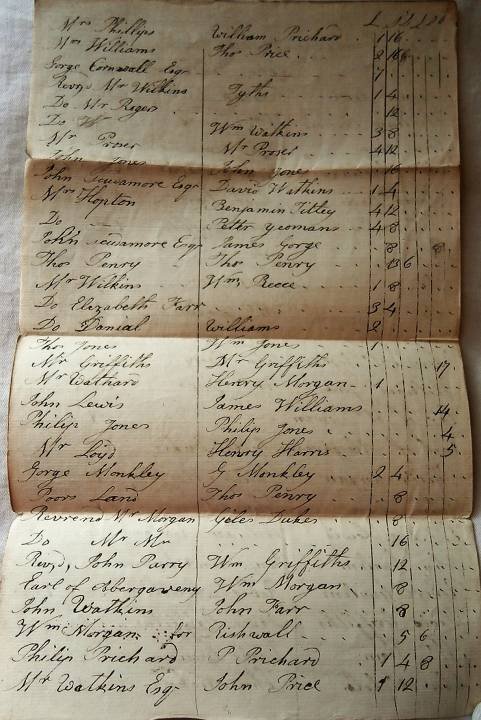 L S D L S D
Mrs Phillips William Prichard 1 16
Mrs Williams Thos Price 2 16 6
Gorge Cornwall Esqr 7
Revrd Mr Wilkins Tyths 1 4
Do Mr Rogers 12
Do W Wm Watkins 3 8
Mr Proser Mr Proser 4 12
John Jones John Jones 16
John Scudamore Esqr David Watkins 1 4
Mrs Hopton Benjamin Titley 4 12
Do Peter Yeomans 4 8
John Scudamore Esqr James Gorge 8 8
Thos Penry Thos Penry 13 6
Mr Wilkins Wm Reece 1 8
Do Elizabeth Farr 3 4
Do Danial Williams 2
Thos Jones Wm Jones 1
Mr Griffiths Mr Griffiths 17
Mr Wathard Henry Morgan 1
John Lewis James Williams 14
Philip Jones Philip Jones 4
Mr Loyd Henry Harris 5
Gorge Monkley G Monkley 2 4
Poors Land Thos Penry 8
Revrend Mr Morgan Giles Dukes 8
Do Mr 16
Revd, John Parry Wm Griffiths 12
Earl of Abergaveny Wm Morgan 8
John Watkins John Farr 8
Wm Morgan for Rishwall 5 6
Philip Prichard P Prichard 1 4 8
Mr Watkins Esqr John Price 1 12